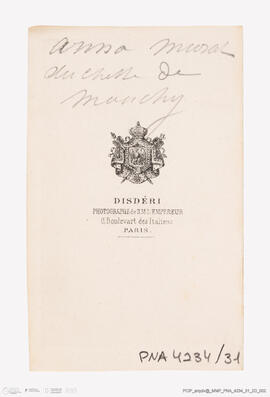 anna murat
duchesse de
Mouchy
DISDÉRI
PHOTOGRAPHE de S.M. L'EMPEREUR
8 Boulevart des Italiens
PARIS.
PNA 4234/31